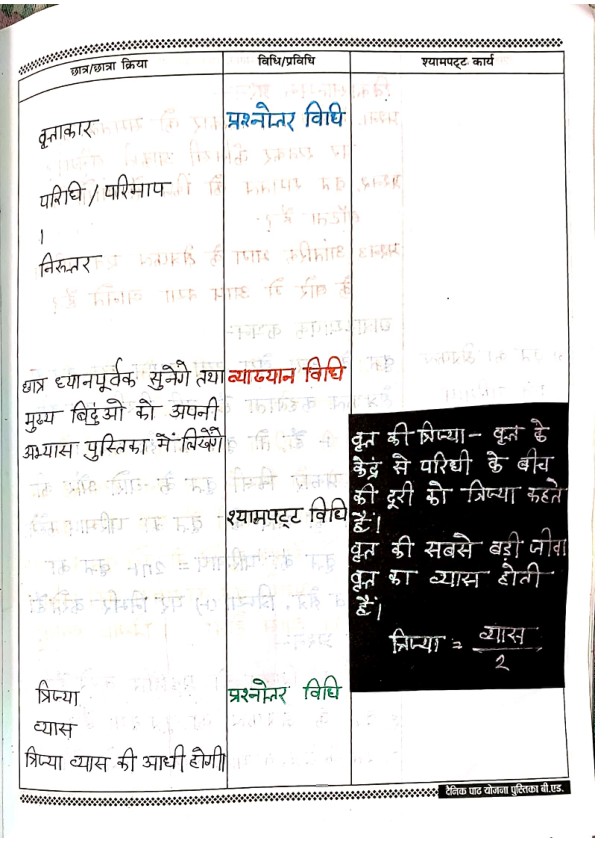 छात्र/छात्रा क्रिया
विधि/प्रविधि
श्यामपट्ट कार्य
वृत्ताकार
प्रश्नोत्तर विधि
परिधि / परिमाप
।
निरूत्तर
छात्र ध्यानपूर्वक सुनेगे तथा
मुख्य बिदुंओ को अपनी
अभ्यास पुस्तिका में लिखेंगे
व्याख्यान विधि
श्यामपट्ट विधि
वृत्त की त्रिज्या - वृत्त के
केंद्र से परिधी के बीच
की दूरी को त्रिज्या कहते
हैं।
वृत्त की सबसे बड़ी जीवा
वृत्त का व्यास होती
हैं।
त्रिज्या = व्यास
2
त्रिज्या
प्रश्नोत्तर विधि
व्यास
त्रिज्या व्यास की आधी होगी॥
दैनिक पाठ योजना पुस्तिका बी.एड.